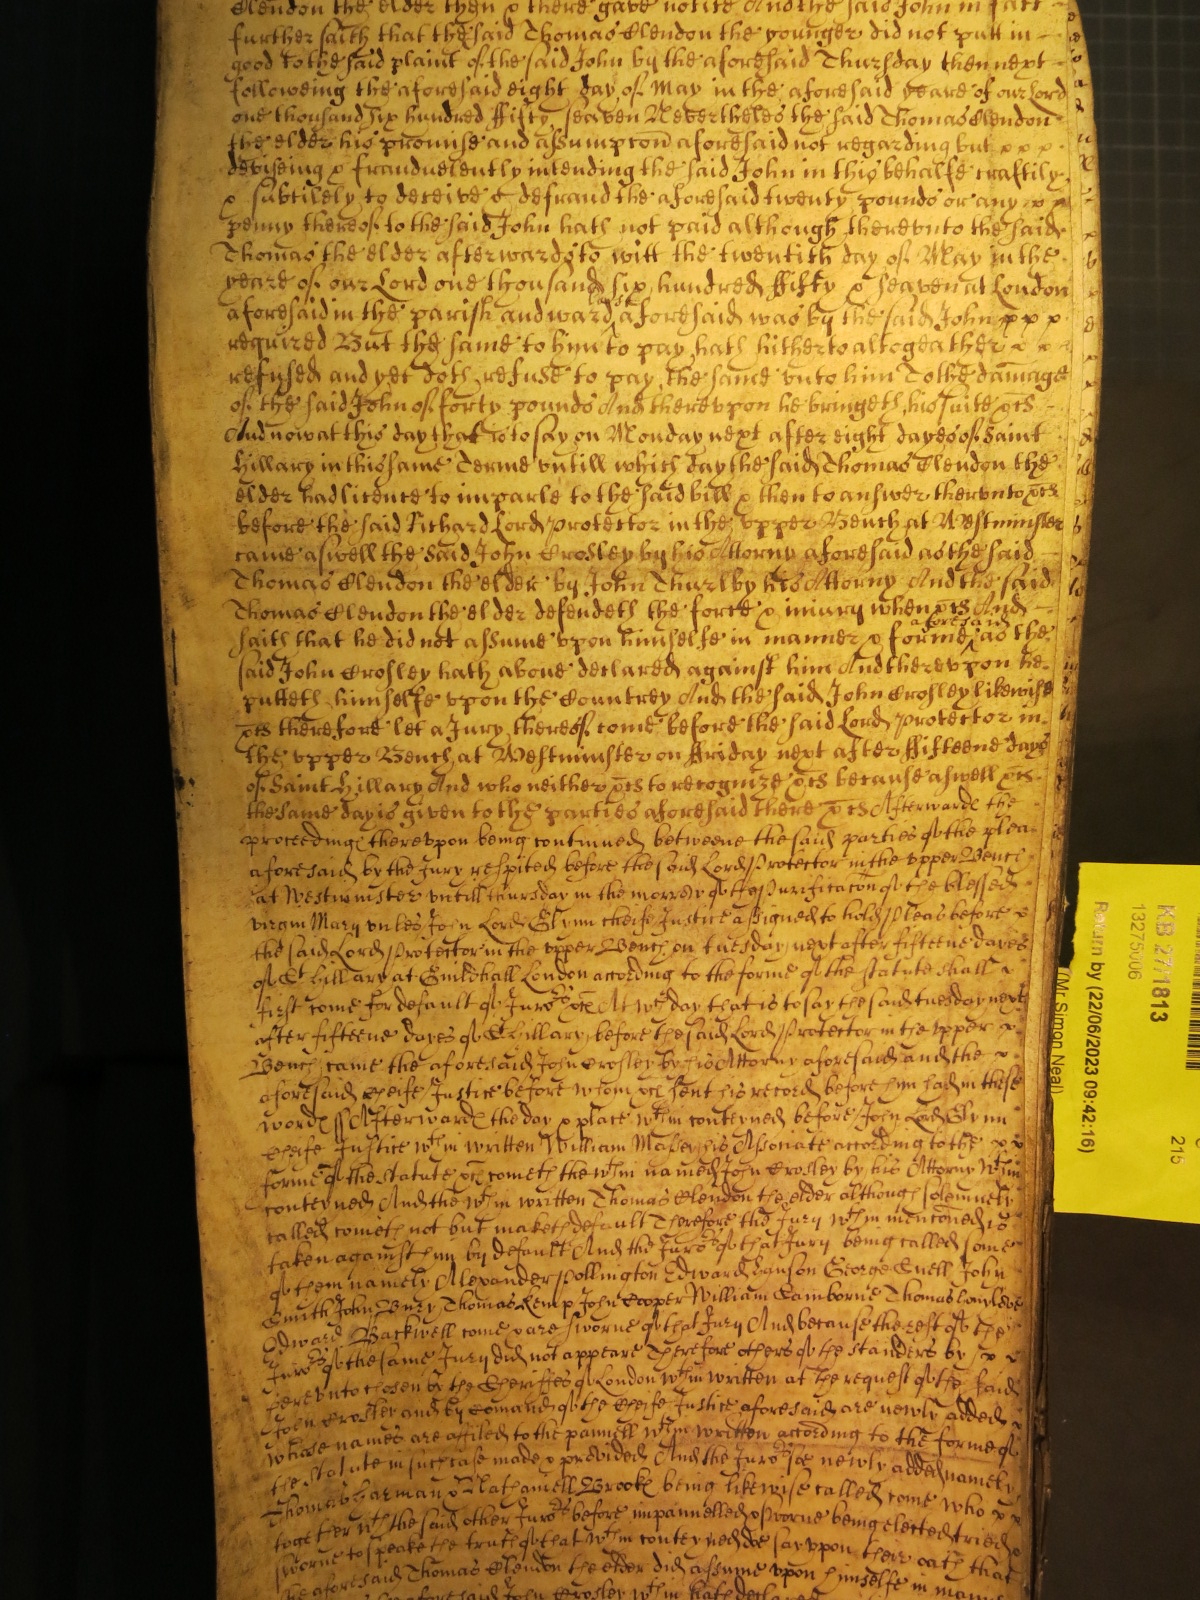 Clendon the elder then & there gave notice And the said John in fact
further saith that the said Thomas Clendon the younger did not putt in
good to the said plaint of the said John by the aforesaid Thursday then next
followeing the aforesaid eight day of May in the aforesaid yeare of our Lord
one thousand six hundred ffifty seaven Nevertheles the said Thomas Clendon
the elder his promise and assumpcon aforesaid not regarding but x x x
deviseing & fraudulently intending the said John in this behalfe craftily
& subtilely to deceive & defraud the aforesaid twenty pounds or any x x
penny thereof to the said John hath not paid although therevnto the said
Thomas the elder afterwards to witt the twentith day of May in the
yeare of our Lord one thousand six hundred ffifty & seaven at London
aforesaid in the parish and ward last aforesaid was by the said John x x x
required But the same to him to pay hath hitherto altogeather x x
refused and yet doth refuse to pay the same vnto him To the damage
of the said John of forty pounds And therevpon he bringeth his suite &cs
And now at this day that is to say on Monday next after eight dayes of Saint
Hillary in this same Terme vntill which day the said Thomas Clendon the
elder had licence to imparle to the said bill & then to answer thervnto &cs
before the said Richard Lord Protector in the vpper Bench at Westminster
came aswell the said John Crosley by his Attorny aforesaid as the said
Thomas Clendon the elder by John Thurlby his Attorny And the said
Thomas Clendon the elder defendeth the force & iniury when &cs And
saith that he did not assume vpon himselfe in manner & forme aforesaid as the
said John Crosley hath aboue declared against him And therevpon he
putteth himselfe vpon the Countrey And the said John Crosley likewise
&cs therefore let a Jury thereof come before the said Lord Protector in
the vpper Bench at Westminster on ffriday next after ffifteene days
of Saint Hillary And who neither &cs to recognize &cs because aswell &cs
the same day is given to the parties aforesaid there &cs Afterwards the
proceeding therevpon being continued betweene the said parties of the plea
aforesaid by the Jury respited before the said Lord Protector in the vpper Bench
at Westminster vntill thursday in the morrow of the Purificacon of the blessed
virgin Mary vnles John Lord Glynn cheife Justice assigned to hold Pleas before x
the said Lord Protector in the vpper Bench on tuesday next after fifteene dayes
of St Hillary at Guildhall London according to the forme of the statute shall x
first come for default of Juro:rs &c At wch day that is to say the said tuesday next
after fifteene dayes of St Hillary before the said Lord Protector in the vpper x
Bench came the aforesaid John Crosley by his Attorny aforesaid and the x
aforesaid cheife Justice before whom &c sent his record before him had in these
words ss Afterwards the day & place wthin conteyned before John Lord Glynn
cheife Justice wthin written William Masley his Associate according to the x x
forme of the statute &c cometh the wthin named John Crosley by his Attorny wthin
conteyned And the wthin written Thomas Clendon the elder although solemnely
called cometh not but maketh default Therefore the Jury wthin menconed is
taken against him by default And the Juro:rs of that Jury being called some
of them namely Alexander Pollington Edward Hanson George Snell John
Smith John Bury Thomas Kemp John Cooper William Camborne Thomas
Edward Backwell come & are sworne of that Jury And because the rest of the
Juro:rs of the same Jury did not appeare Therefore others of the standers by x x
herevnto chosen by the Sheriffes of London wthin written at the request of the said
John Crosley and by comand of the cheife Justice aforesaid are newly added x
whose names are affiled to the pannell wthin written according to the forme of
the statute in such case made & provided And the Juro:rs soe newly added namely
Thomas Harman & Nathaniell Brooks being likewise called come who x x
together wth the said other Juro:rs before impannelled & sworne being elected tried &
sworne to speake the truth of that wthin conteyned doe say vpon their oath that
the aforesaid Thomas Clendon the elder did assume vpon himselfe in manner
as the aforesaid John Crosley wthin hath declared
KB 27/1813
13275006
Return by (22/06/2023 09:42:16)
(Mr Simon Neal)
215